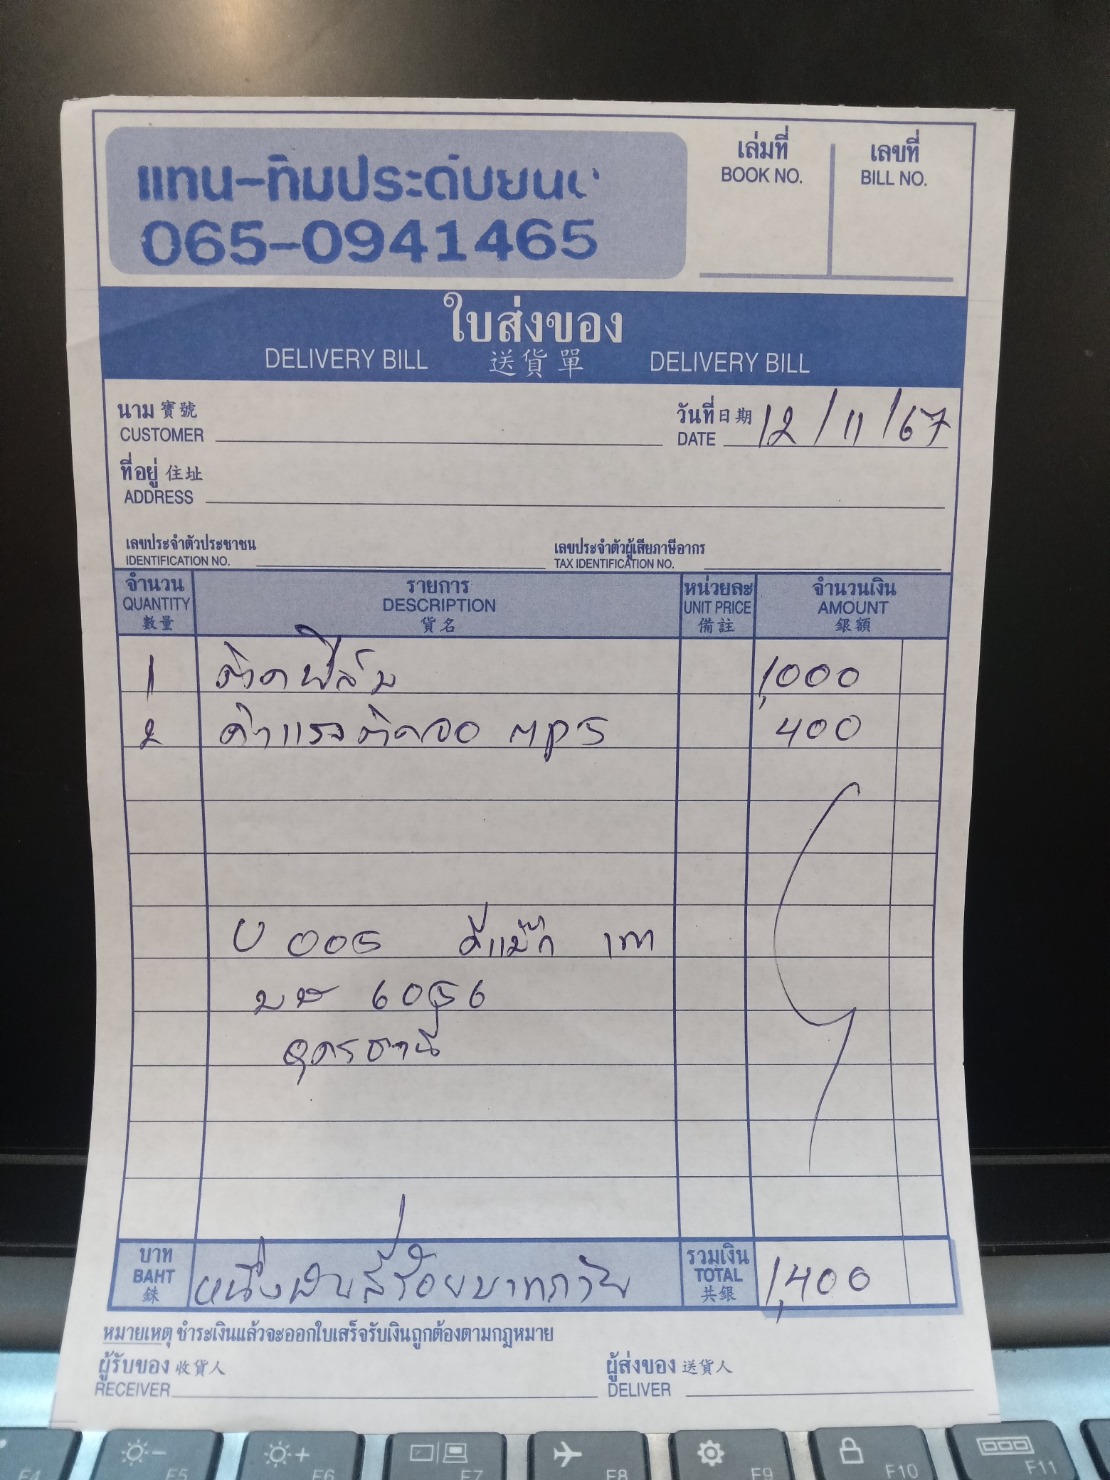 แทน-ทิมประดับยนต์
065-0941465
เล่มที่
BOOK NO.
เลขที่
BILL NO.
ใบส่งของ
DELIVERY BILL 送貨單 DELIVERY BILL
นาม 寶號
CUSTOMER
วันที่ 日期
DATE 12/11/67
ที่อยู่ 住址
ADDRESS
เลขประจำตัวประชาชน
IDENTIFICATION NO.
เลขประจำตัวผู้เสียภาษีอากร
TAX IDENTIFICATION NO.
จำนวน
QUANTITY
數量
รายการ
DESCRIPTION
貨名
หน่วยละ
UNIT PRICE
備註
จำนวนเงิน
AMOUNT
銀額
1 ติดฟิล์ม 1,000
2 ค่าแรงติดจอ MP5 400
U 005 ดีแม็ก เทา
6056
อุดรธานี
บาท
BAHT
銖
หนึ่งพันสี่ร้อยบาทถ้วน
รวมเงิน
TOTAL
共銀
1,400
หมายเหตุ ชำระเงินแล้วจะออกใบเสร็จรับเงินถูกต้องตามกฎหมาย
ผู้รับของ 收貨人
RECEIVER
ผู้ส่งของ 送貨人
DELIVER
F4 F5 F6 F7 F8 F9 F10 F11